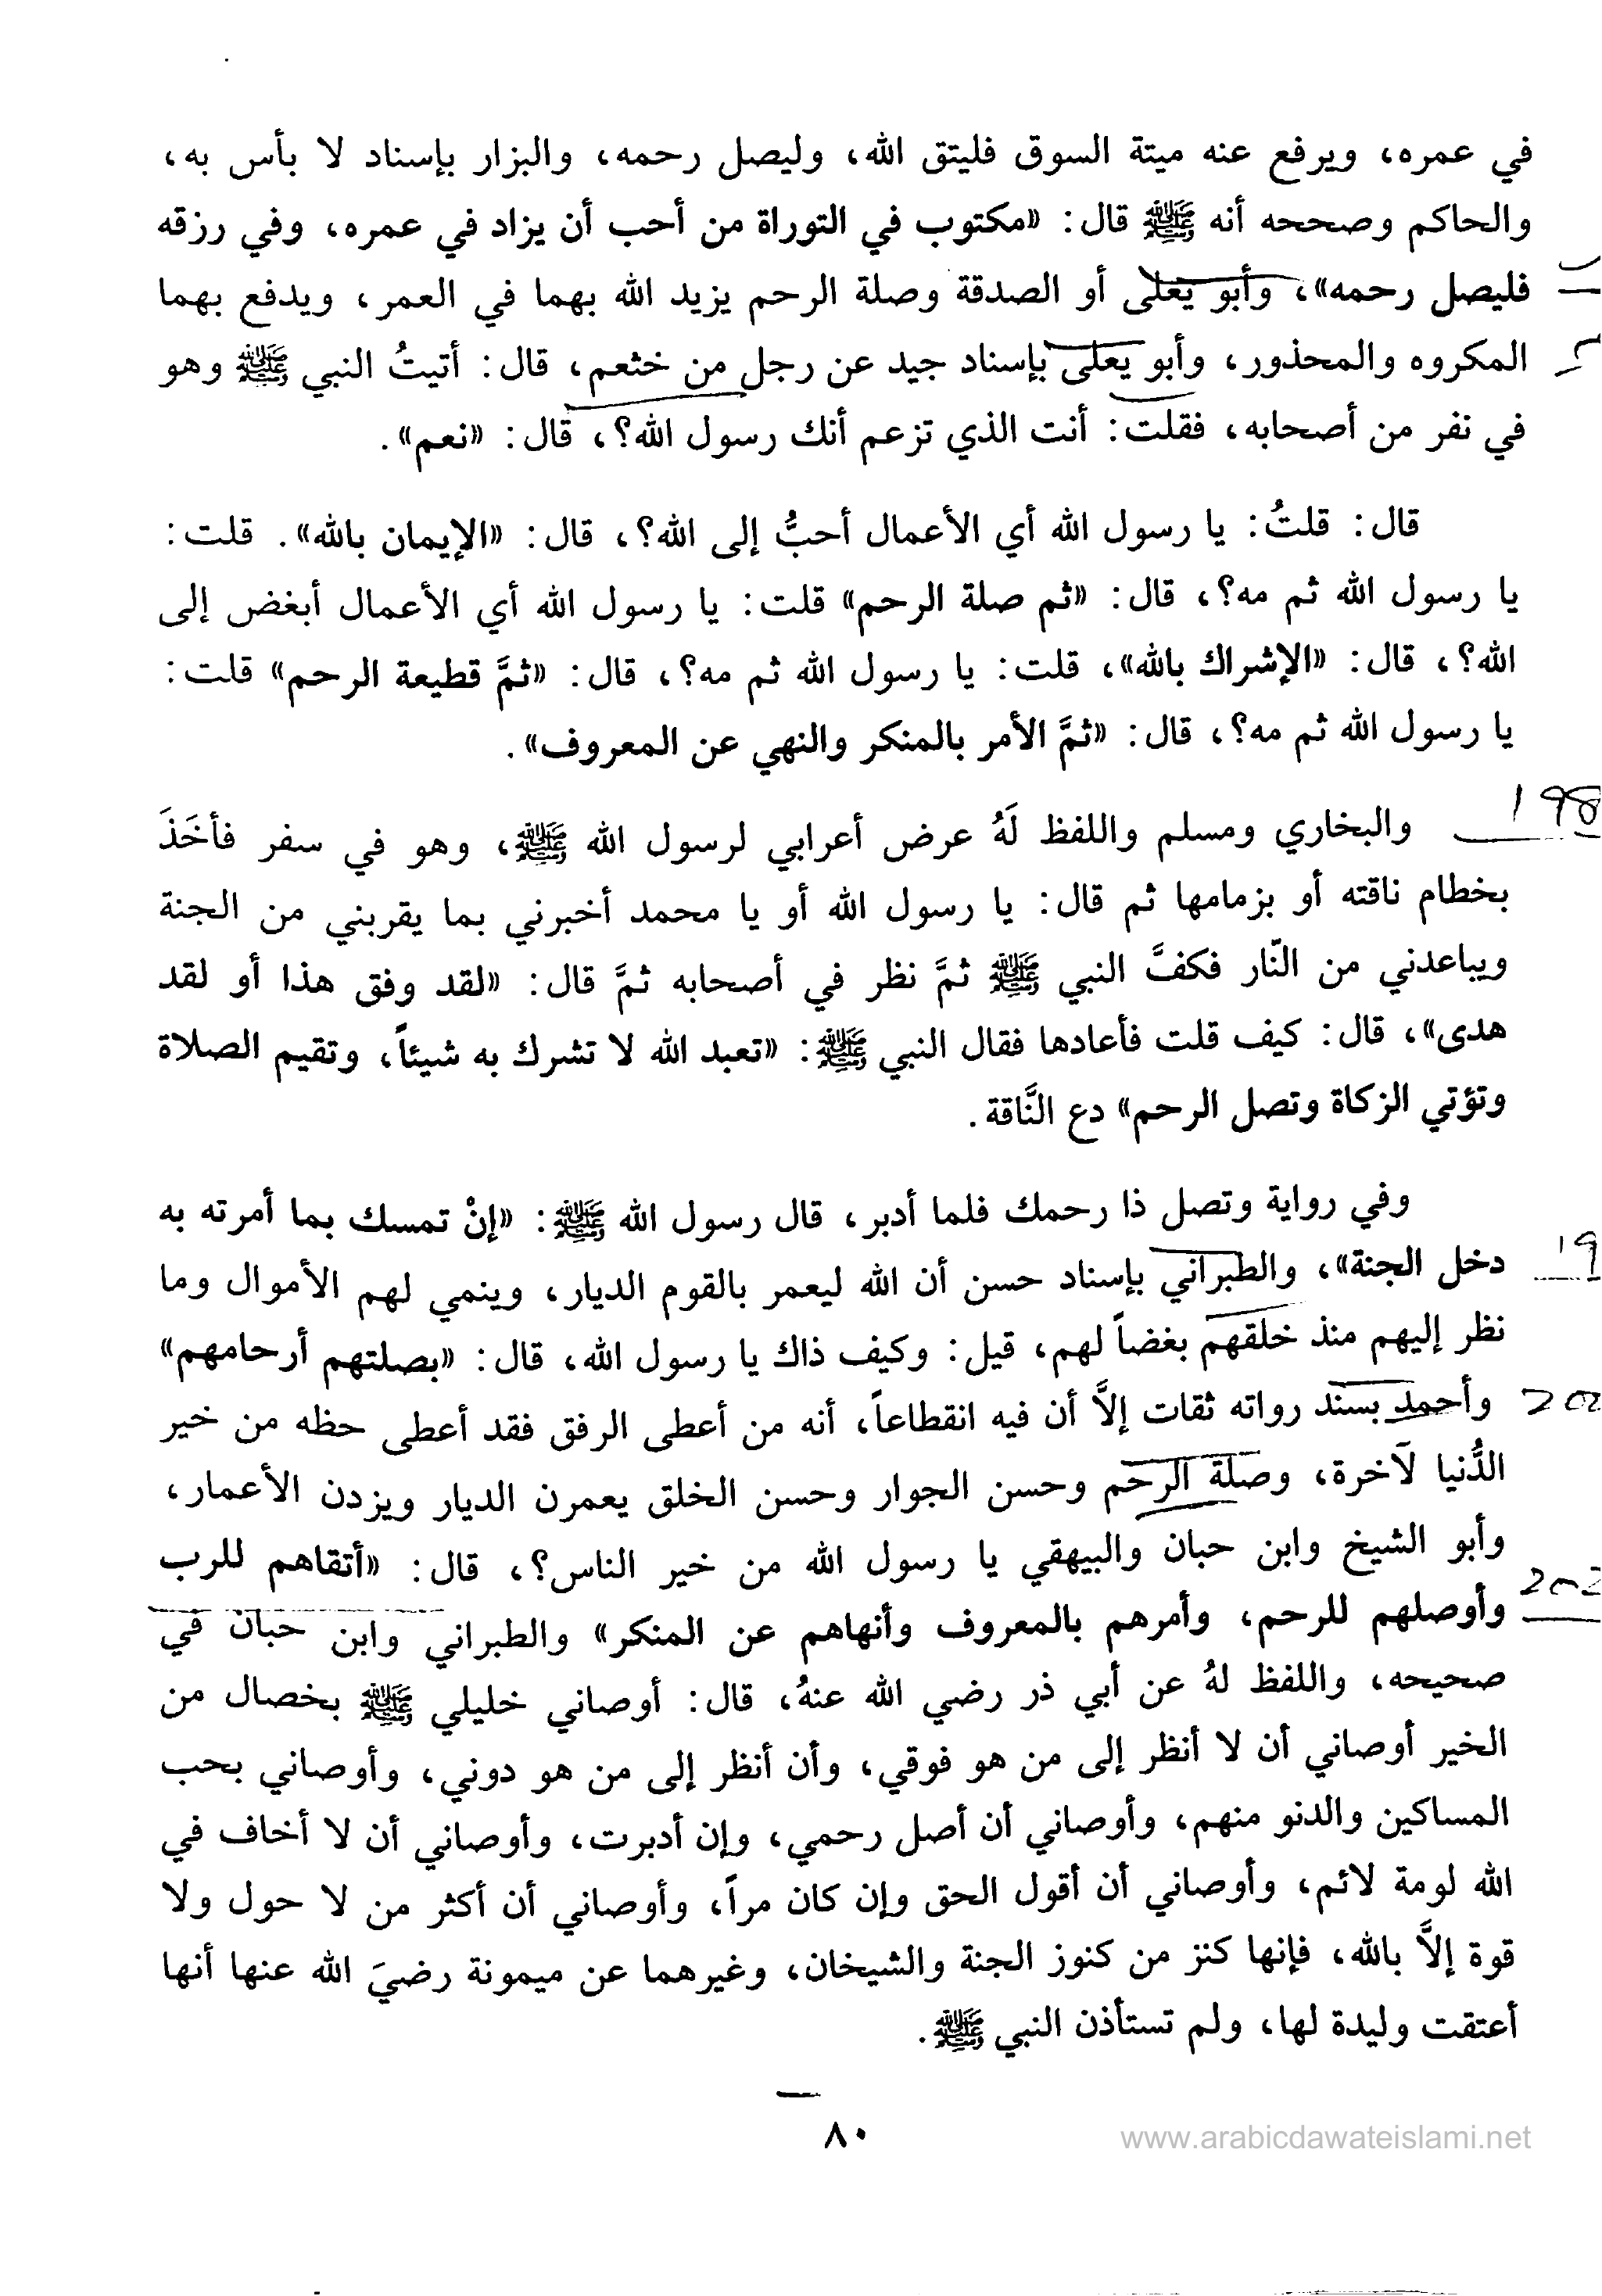 في عمره، ويرفع عنه ميتة السوق فليتق الله، وليصل رحمه، والبزار بإسناد لا بأس به،
والحاكم وصححه أنه ﷺ قال: «مكتوب في التوراة من أحب أن يزاد في عمره، وفي رزقه
فليصل رحمه»، وأبو يعلى أو الصدقة وصلة الرحم يزيد الله بهما في العمر، ويدفع بهما
المكروه والمحذور، وأبو يعلى بإسناد جيد عن رجل من خثعم، قال: أتيتُ النبي ﷺ وهو
في نفر من أصحابه، فقلت: أنت الذي تزعم أنك رسول الله؟، قال: «نعم».
قال: قلتُ: يا رسول الله أي الأعمال أحبُّ إلى الله؟، قال: «الإيمان بالله». قلت:
يا رسول الله ثم مه؟، قال: «ثم صلة الرحم» قلت: يا رسول الله أي الأعمال أبغض إلى
الله؟، قال: «الإشراك بالله»، قلت: يا رسول الله ثم مه؟، قال: «ثمَّ قطيعة الرحم» قلت:
يا رسول الله ثم مه؟، قال: «ثمَّ الأمر بالمنكر والنهي عن المعروف».
198
والبخاري ومسلم واللفظ لَهُ عرض أعرابي لرسول الله ﷺ، وهو في سفر فأخَذَ
بخطام ناقته أو بزمامها ثم قال: يا رسول الله أو يا محمد أخبرني بما يقربني من الجنة
ويباعدني من النّار فكفَّ النبي ﷺ ثمَّ نظر في أصحابه ثمَّ قال: «لقد وفق هذا أو لقد
هدى»، قال: كيف قلت فأعادها فقال النبي ﷺ: «تعبد الله لا تشرك به شيئاً، وتقيم الصلاة
وتؤتي الزكاة وتصل الرحم» دع النَّاقة.
وفي رواية وتصل ذا رحمك فلما أدبر، قال رسول الله ﷺ: «إنْ تمسك بما أمرته به
19
دخل الجنة»، والطبراني بإسناد حسن أن الله ليعمر بالقوم الديار، وينمي لهم الأموال وما
نظر إليهم منذ خلقهم بغضاً لهم، قيل: وكيف ذاك يا رسول الله، قال: «بصلتهم أرحامهم»
200
وأحمد بسند رواته ثقات إلاَّ أن فيه انقطاعاً، أنه من أعطى الرفق فقد أعطى حظه من خير
الدُّنيا لآخرة، وصلة الرحم وحسن الجوار وحسن الخلق يعمرن الديار ويزدن الأعمار،
وأبو الشيخ وابن حبان والبيهقي يا رسول الله من خير الناس؟، قال: «أتقاهم للرب
وأوصلهم للرحم، وأمرهم بالمعروف وأنهاهم عن المنكر» والطبراني وابن حبان في
صحيحه، واللفظ لهُ عن أبي ذر رضي الله عنهُ، قال: أوصاني خليلي ﷺ بخصال من
الخير أوصاني أن لا أنظر إلى من هو فوقي، وأن أنظر إلى من هو دوني، وأوصاني بحب
المساكين والدنو منهم، وأوصاني أن أصل رحمي، وإن أدبرت، وأوصاني أن لا أخاف في
الله لومة لائم، وأوصاني أن أقول الحق وإن كان مراً، وأوصاني أن أكثر من لا حول ولا
قوة إلاَّ بالله، فإنها كنز من كنوز الجنة والشيخان، وغيرهما عن ميمونة رضيَ الله عنها أنها
أعتقت وليدة لها، ولم تستأذن النبي ﷺ.
٨٠
www.arabicdawateislami.net